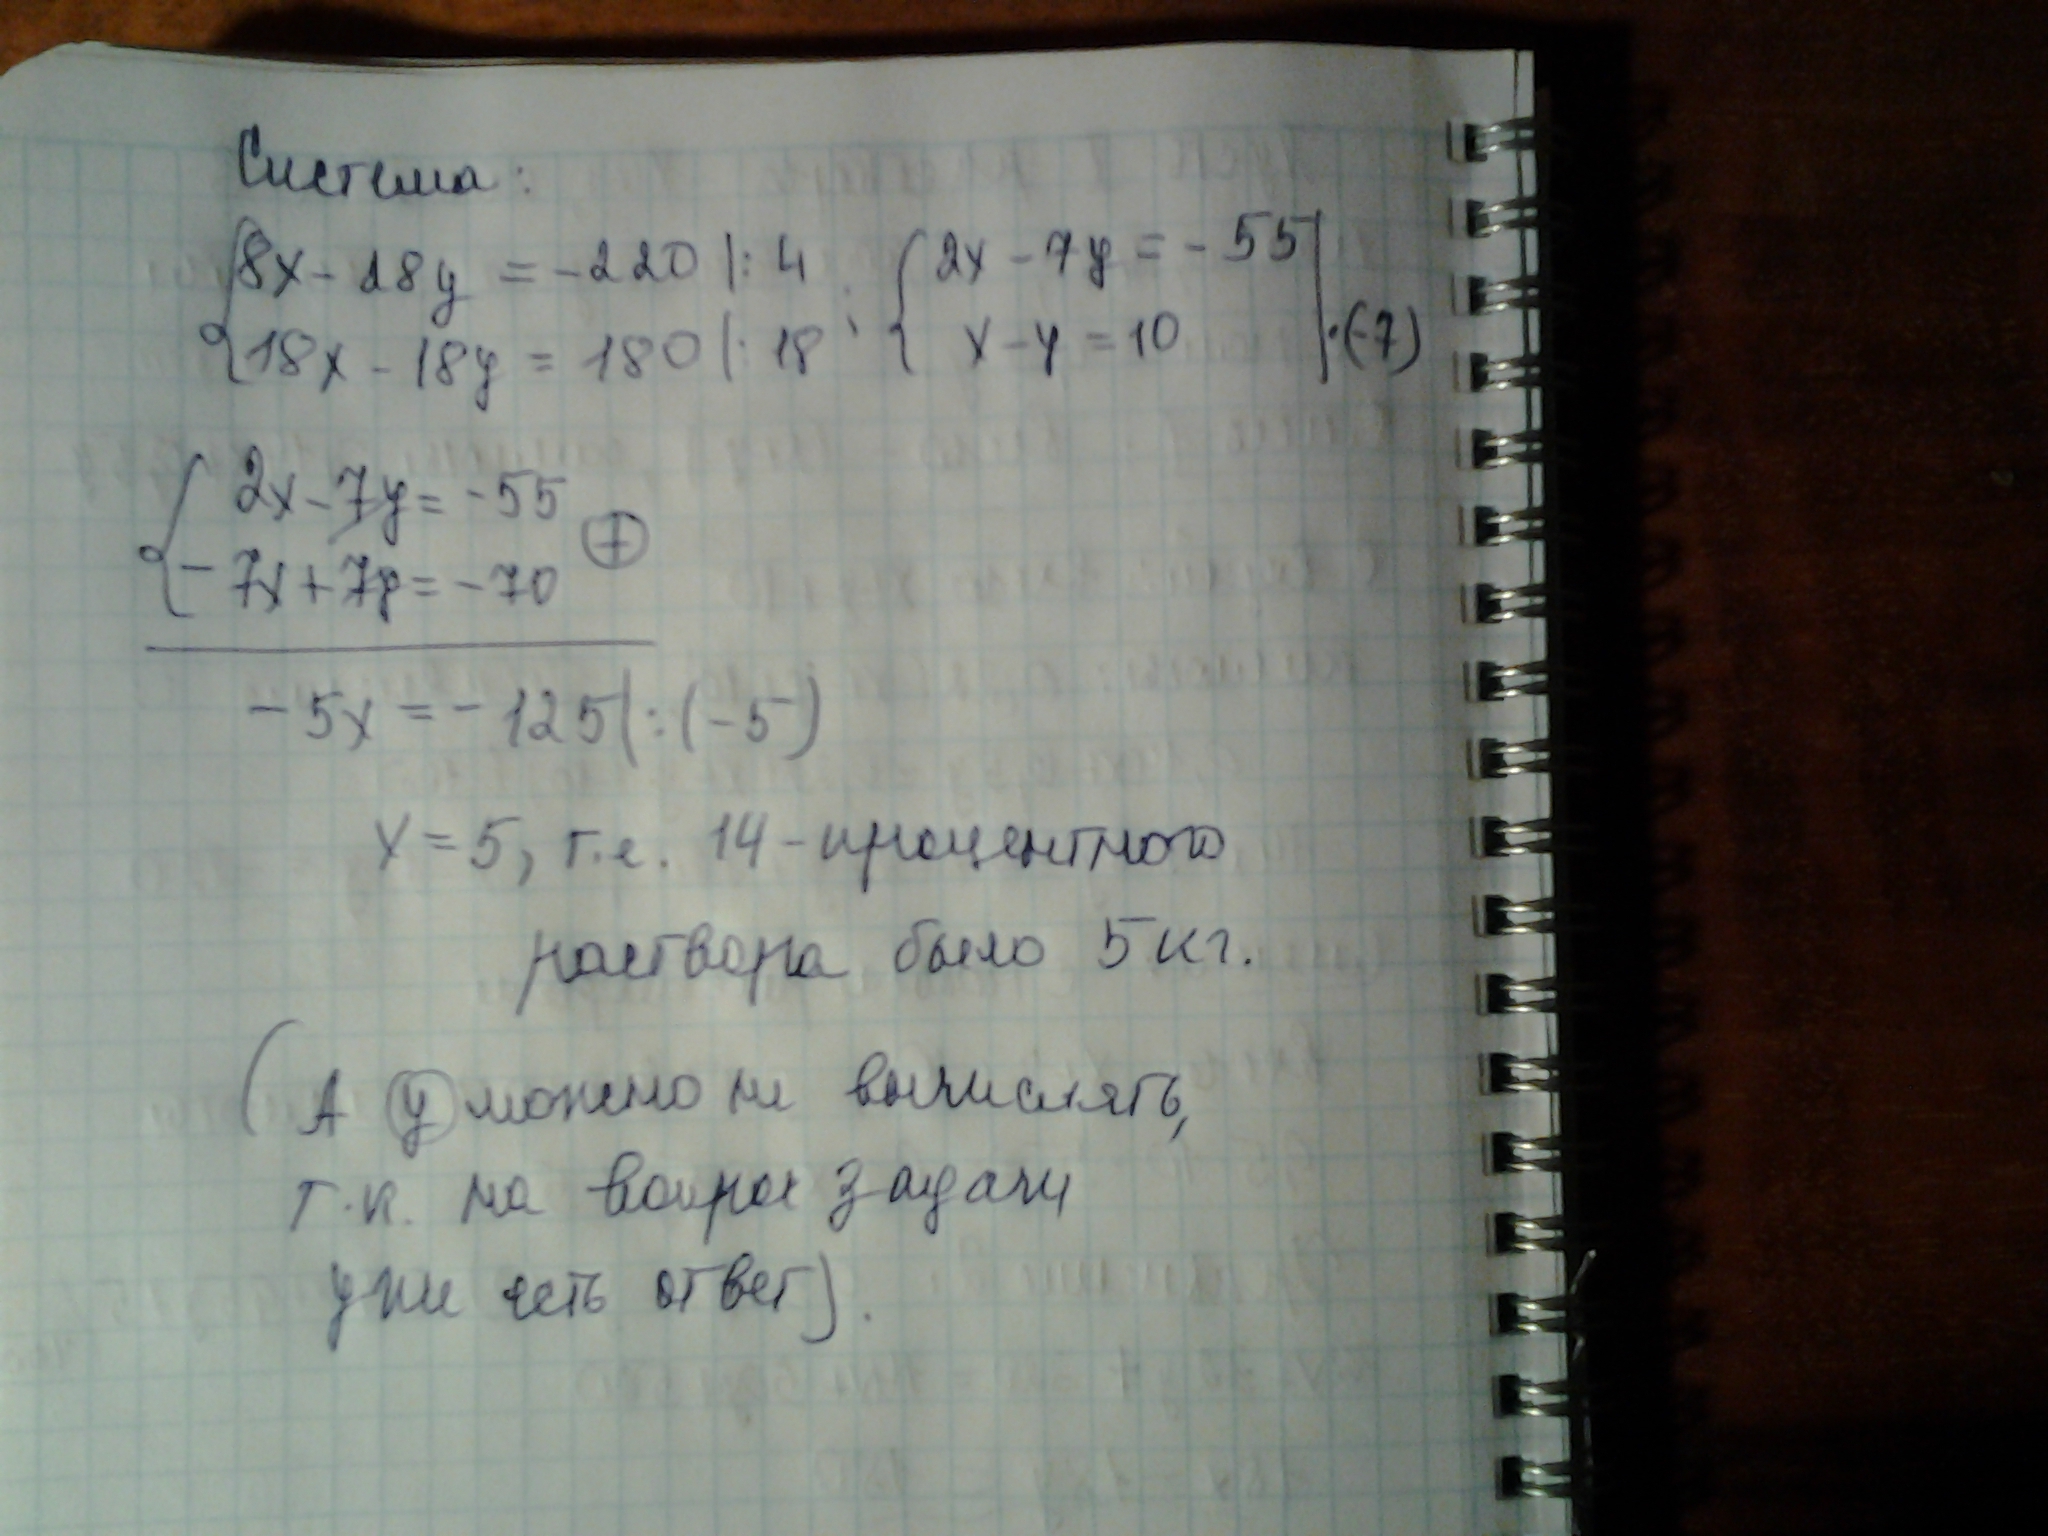 Система:
{8x - 28y = -220 |: 4 ; {2x - 7y = -55
{18x - 18y = 180 |: 18 { x - y = 10 |·(-7)
{2x - 7y = -55
{-7x + 7y = -70 ⊕
-5x = -125 |:(-5)
x = 5, т.е. 14-процентного
раствора было 5 кг.
(А у можно не вычислять,
т.к. на вопрос задачи
уже есть ответ).